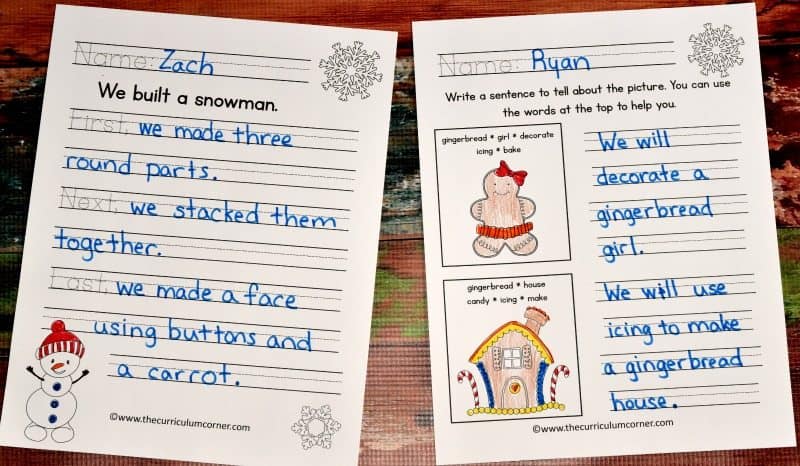 Name: Zach
We built a snowman.
First, we made three
round parts.
Next, we stacked them
together.
Last, we made a face
using buttons and
a carrot.
©www.thecurriculumcorner.com
Name: Ryan
Write a sentence to tell about the picture. You can use
the words at the top to help you.
gingerbread * girl * decorate
icing * bake
We will
decorate a
gingerbread
girl.
gingerbread * house
candy * icing * make
We will use
icing to make
a gingerbread
house.
©www.thecurriculumcorner.com